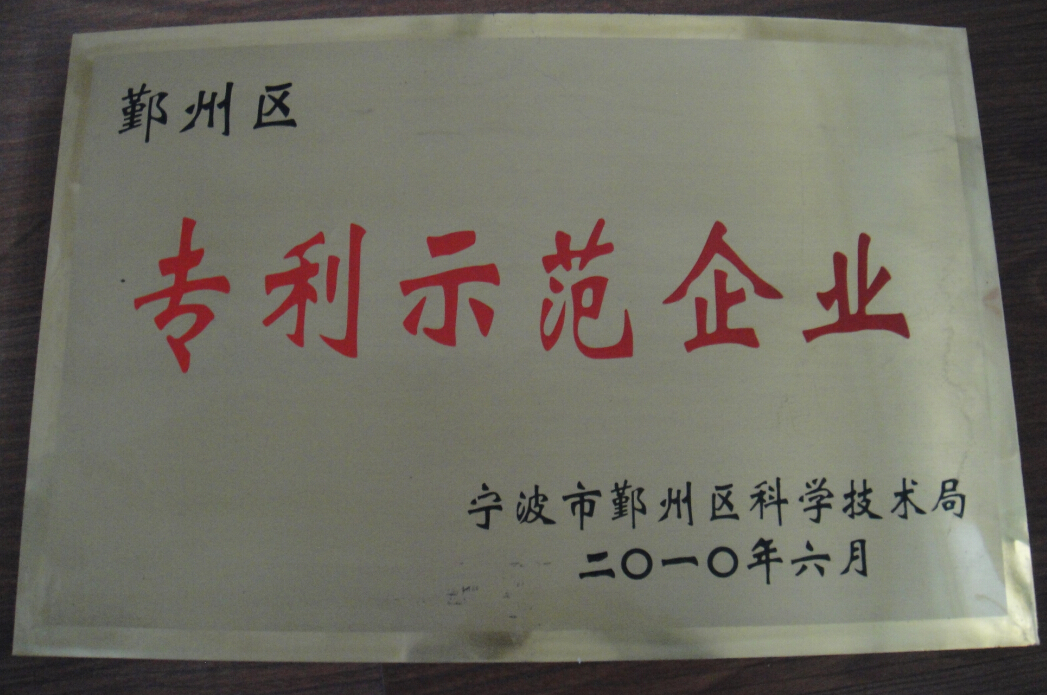 鄞州区
专利示范企业
宁波市鄞州区科学技术局
二〇一〇年六月